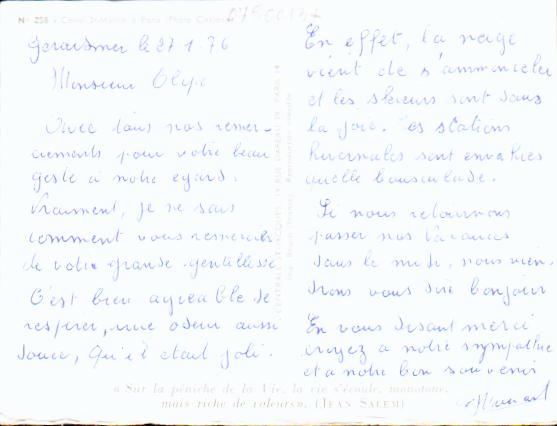 Nº 258 - Canal St-Martin à Paris (Photo
07500134
Gerardmer le 27 1. 76
Monsieur
Avec tous nos remer-
ciements pour votre beau
geste a notre egard.
Vraiment, je ne sais
comment vous remercier
de votre grande gentillesse
C'est bien agreable de
respirer, une odeur aussi
douce, Qu'il etait joli.
En effet, la neige
vient de s'ammonceler
et les skieurs sont dans
la joie. les stations
hivernales sont envahies
quelle bousculade.
Si nous retournons
passer nos Vacances
dans le midi, nous vien-
drons vous dire bonjour
En vous disant merci
croyez a notre sympathie
et a notre bon souvenir
« Sur la péniche de la Vie, la vie s'écoule, monotone,
mais riche de valeurs». (JEAN SALEM)